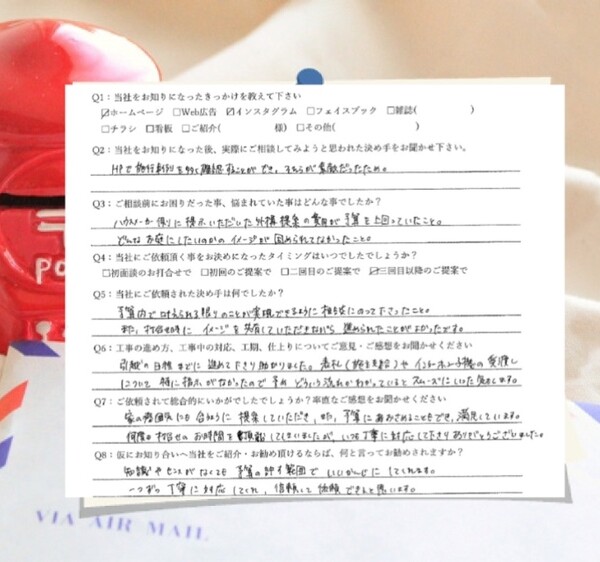 Q1：当社をお知りになったきっかけを教えて下さい
☑ホームページ □Web広告 ☑インスタグラム □フェイスブック □雑誌( )
□チラシ □看板 □ご紹介( 様) □その他( )
Q2：当社をお知りになった後、実際にご相談してみようと思われた決め手をお聞かせ下さい。
HPで施行事例を多く確認することができ、それらが素敵だったため。
Q3：ご相談前にお困りだった事、悩まれていた事はどんな事でしたか？
ハウスメーカー側に提示いただいた外構提案の費用が予算を上回っていたこと。
どんなお庭にしたいのかのイメージが固められてなかったこと。
Q4：当社にご依頼頂く事をお決めになったタイミングはいつでしたでしょうか？
□初面談のお打合せで □初回のご提案で □二回目のご提案で ☑三回目以降のご提案で
Q5：当社にご依頼された決め手は何でしたか？
予算内で叶えられる限りのことが実現できるように相談にのって下さったこと。
また、打合せ時にイメージを共有していただきながら進められたことがよかったです。
Q6：工事の進め方、工事中の対応、工期、仕上りについてご意見・ご感想をお聞かせください
引越の日程までに進めて下さり助かりました。表札(施主支給)やインターホン子機の受渡し
について特に指示がなかったので予め どういう流れかわかっているとスムーズにいった気がします。
Q7：ご依頼されて総合的にいかがでしたでしょうか？率直なご感想をお聞かせください
家の雰囲気にも合うように提案していただき、また、予算におさめることもでき、満足しています。
何度も打合せのお時間を頂戴してしまいましたが、いつも丁寧に対応して下さりありがとうございました。
Q8：仮にお知り合いへ当社をご紹介・お勧め頂けるならば、何と言ってお勧めされますか？
知識やセンスがなくても予算の許す範囲でいいかんじにしてくれます。
一つずつ丁寧に対応してくれ、信頼して依頼できると思います。
PO
VIA AIR MAIL